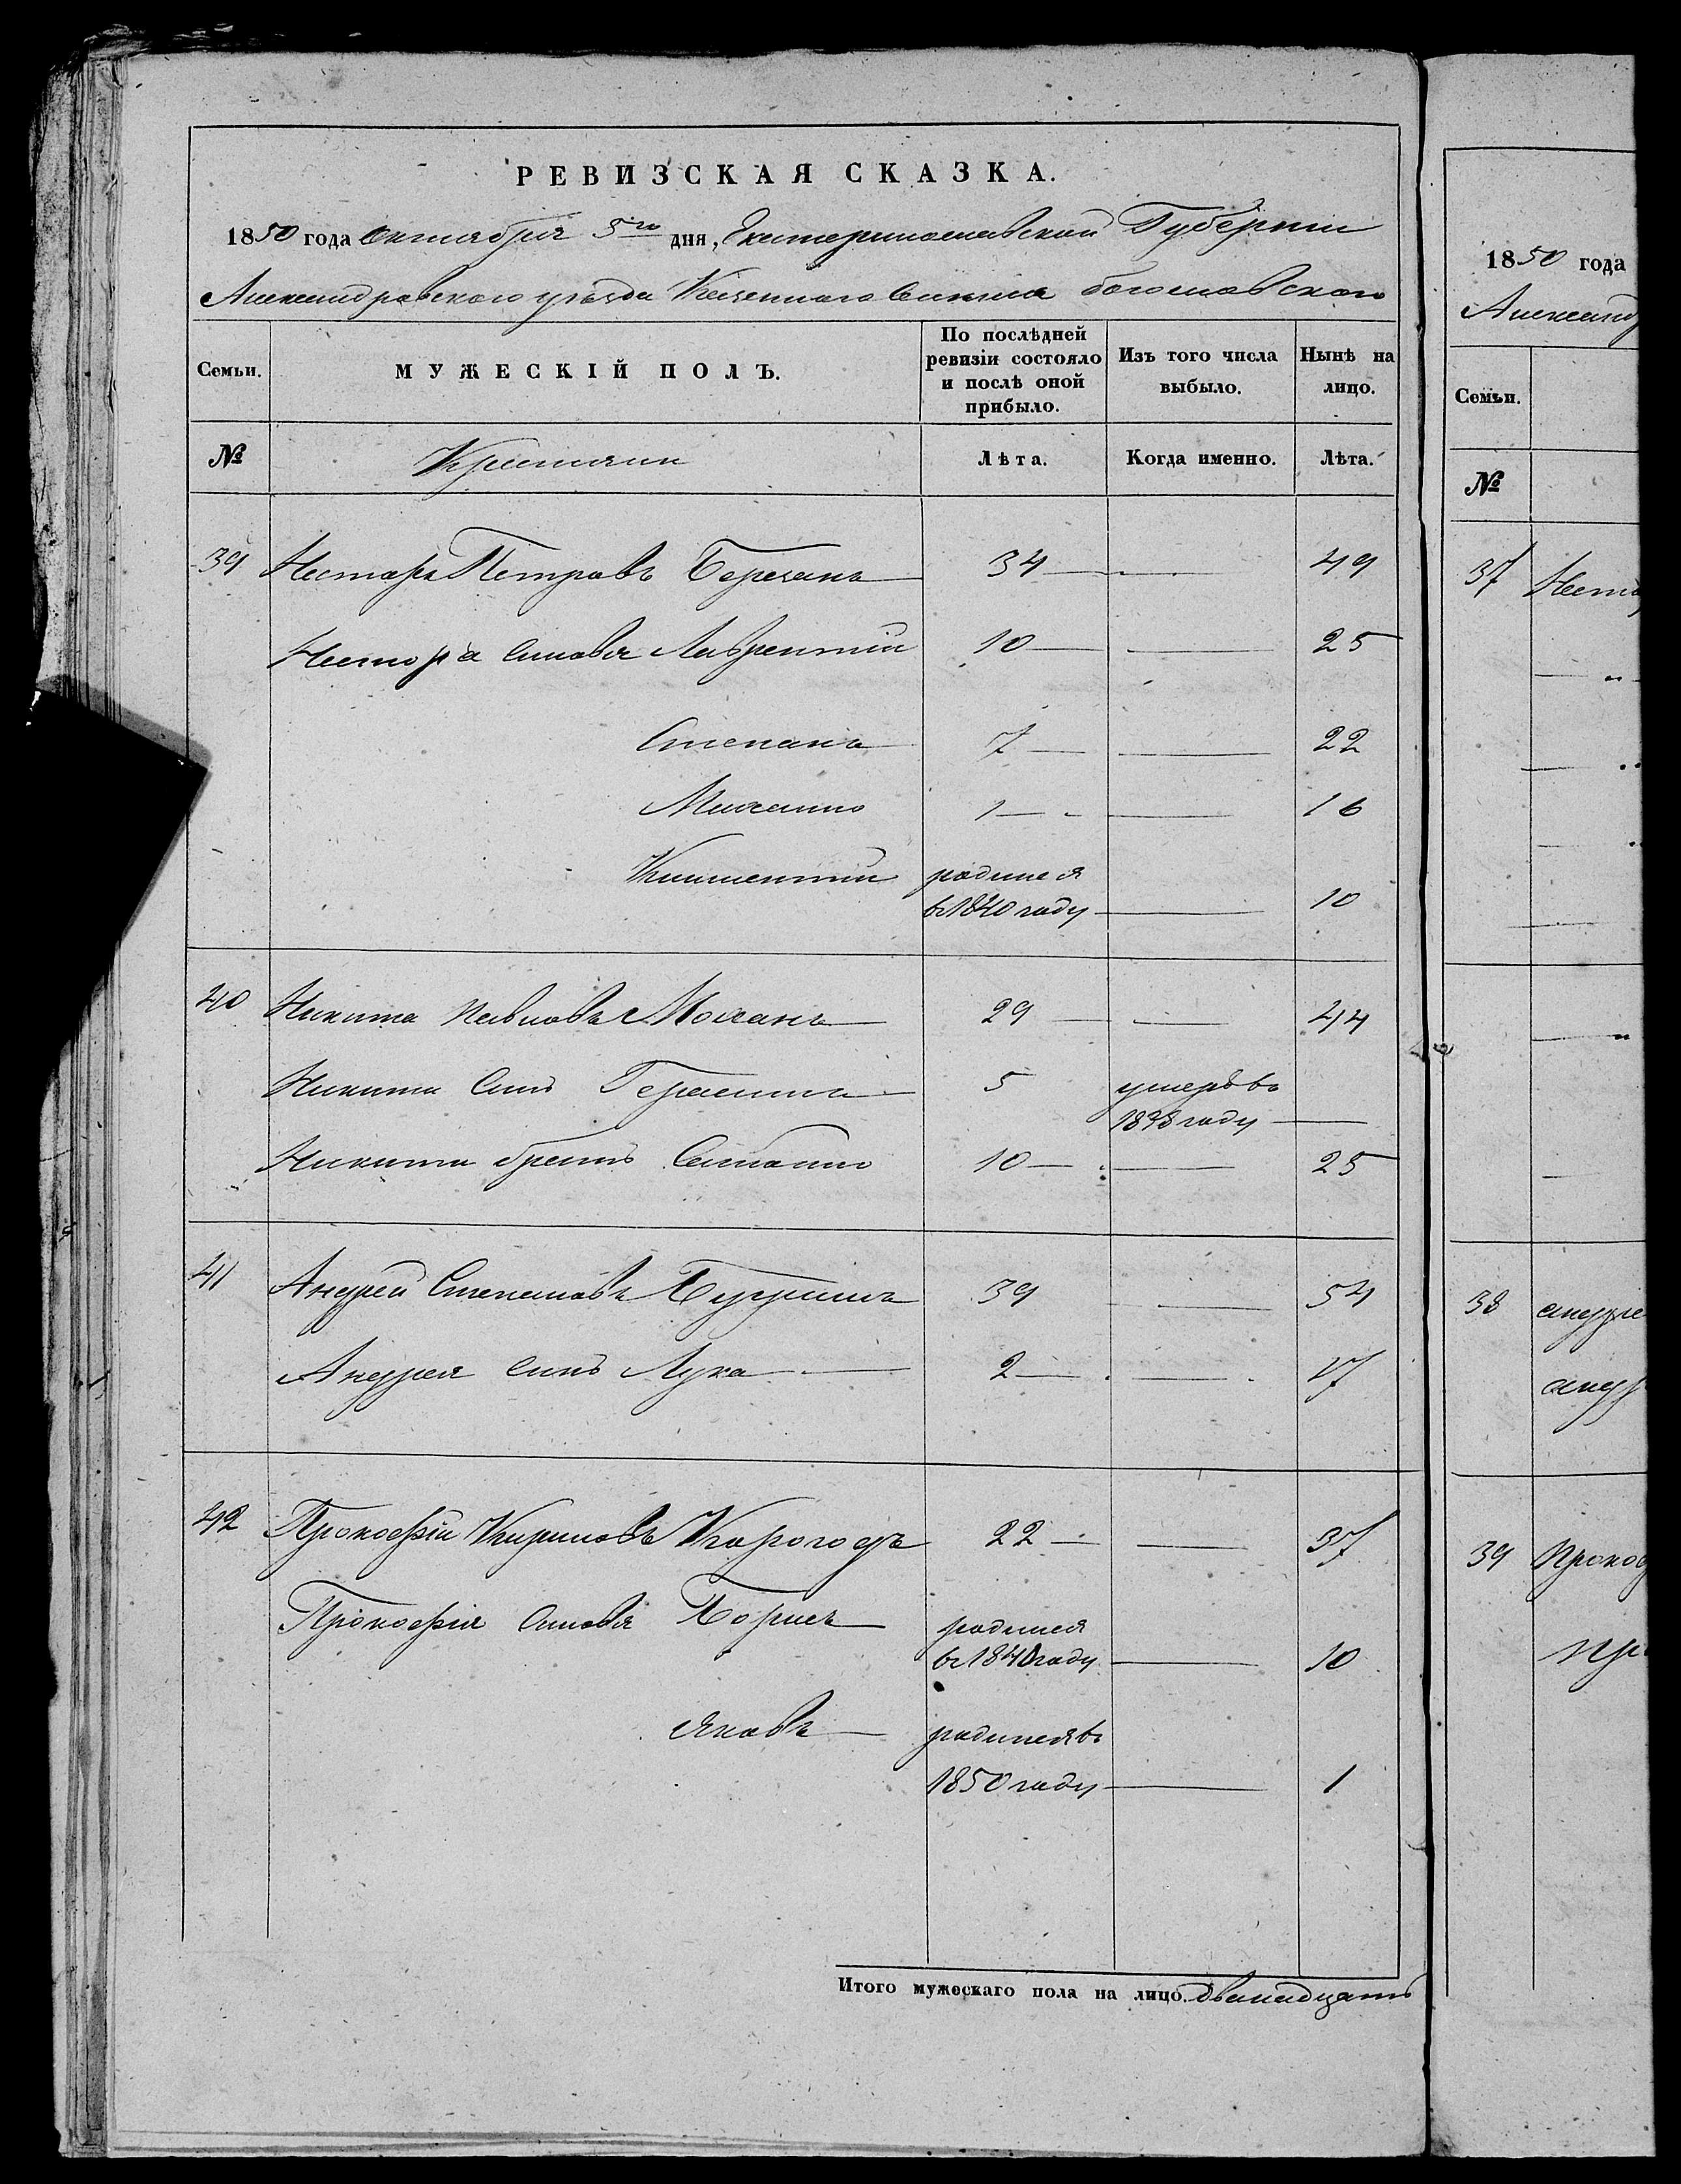 РЕВИЗСКАЯ СКАЗКА.
1850 года октября 5го дня, Екатеринославской Губернии
Александровского уезда Казенного Селения богословского
Семьи.
МУЖЕСКІЙ ПОЛЪ.
По послѣдней ревизіи состояло и послѣ оной прибыло.
Изъ того числа выбыло.
Нынѣ на лицо.
№
Крестьяни
Лѣта.
Когда именно.
Лѣта.
39 Несторъ Петровъ 34 — 49
Нестора сыновья Лаврентий 10 — 25
Степанъ 7 — 22
Михаило 1 — 16
Климентий родился
въ 1840 году — 10
40 Никита Павловъ Моханъ 29 — 44
Никиты сынъ Герасимъ 5 умеръ въ
1838 году —
Никиты братъ 10 — 25
41 Андрей Степановъ 39 — 54
Андрея сынъ Лука — 2 — 17
42 Прокофій Кириловъ Корогодъ 22 — 37
Прокофія сыновья Борисъ родился
въ 1840 году — 10
Яковъ — родился въ
1850 году — 1
Итого мужескаго пола на лицо. двенадцать
1850 года
Александ
Семьи.
№
37 Нест
38 андре
анд
39 Проко